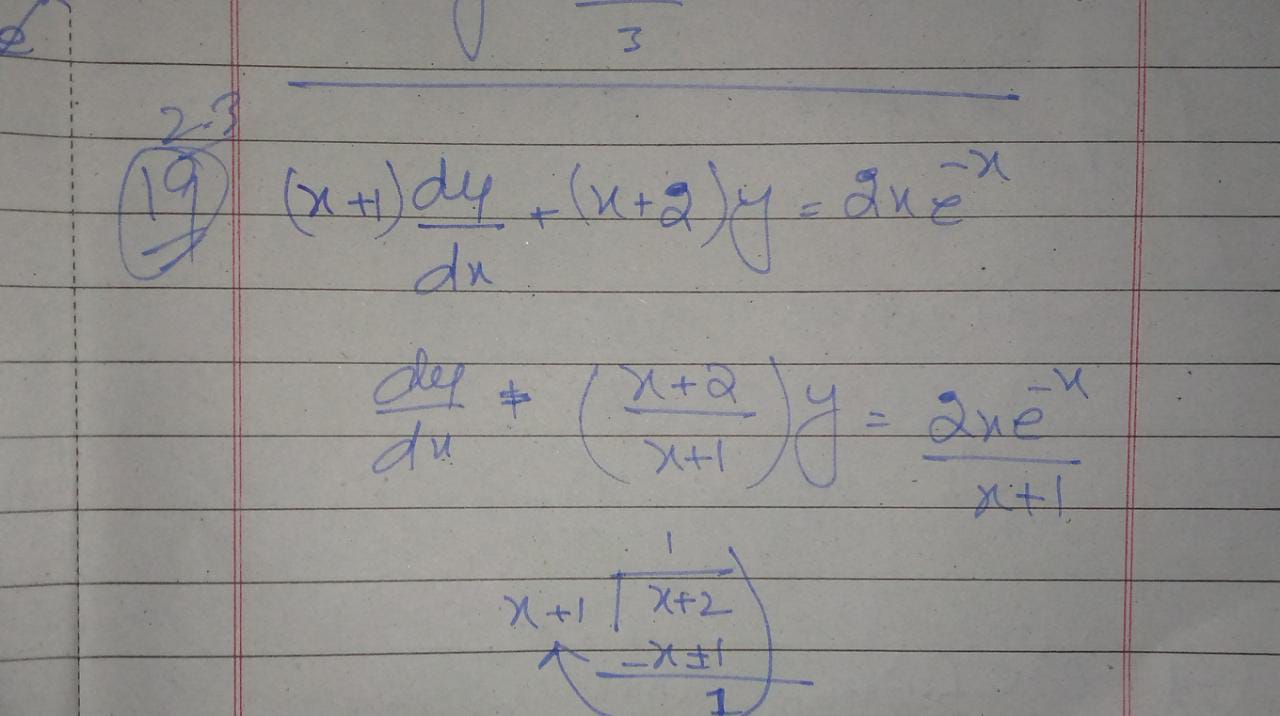 y 3
e
2.3
19 (x+1) dy/dx + (x+2)y = 2xe^-x
dy/dx + (x+2/x+1)y = 2xe^-x/x+1
1
x+1 | x+2
-x±1
1